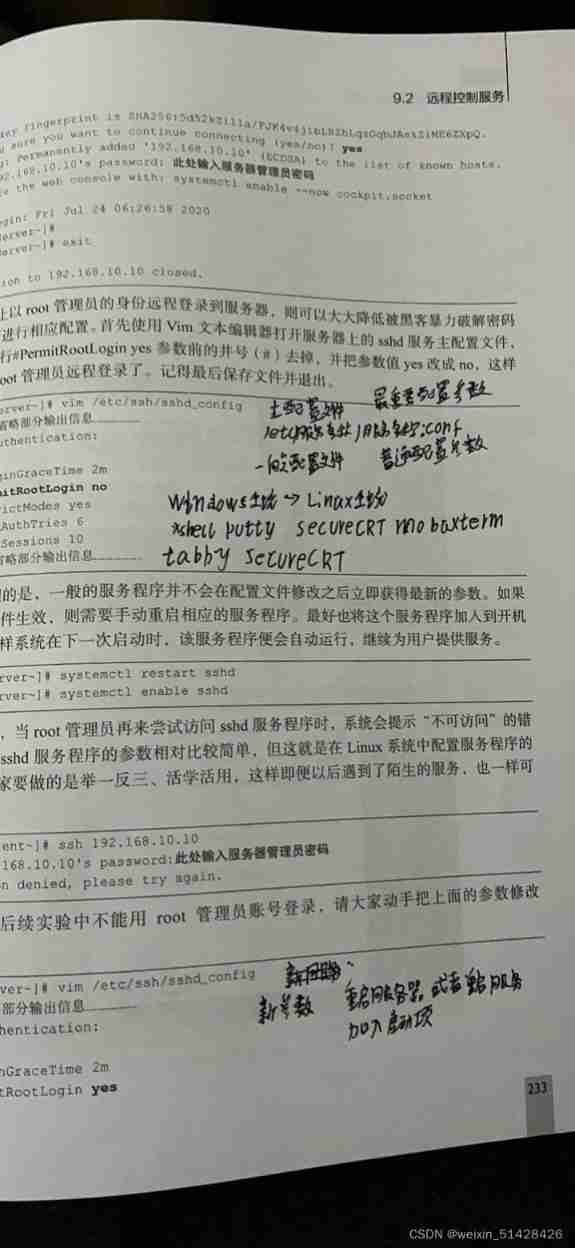 9.2 远程控制服务
fingerprint is
sure you want to continue connecting (yes/no)? yes
Permanently added '192.168.10.10' (ECDSA) to the list of known hosts.
92.168.10.10's password: 此处输入服务器管理员密码
the web console with: systemctl enable --now cockpit.socket
ogin: Fri Jul 24 06:26:58 2020
erver~]#
erver~]# exit
ion to 192.168.10.10 closed.
止以 root 管理员的身份远程登录到服务器,则可以大大降低被黑客暴力破解密码
进行相应配置。首先使用 Vim 文本编辑器打开服务器上的 sshd 服务主配置文件,
行#PermitRootLogin yes 参数前的井号(#)去掉,并把参数值 yes 改成 no,这样
oot 管理员远程登录了。记得最后保存文件并退出。
erver~]# vim /etc/ssh/sshd_config
主配置文件 最重要配置参数
省略部分输出信息
/etc/服务名称/服务名称.conf
uthentication:
一般配置文件 普通配置参数
ginGraceTime 2m
mitRootLogin no
windows主机→Linux主机
rictModes yes
xshell putty secureCRT mobaxterm
AuthTries 6
Sessions 10
省略部分输出信息
tabby secureCRT
的是,一般的服务程序并不会在配置文件修改之后立即获得最新的参数。如果
件生效,则需要手动重启相应的服务程序。最好也将这个服务程序加入到开机
样系统在下一次启动时,该服务程序便会自动运行,继续为用户提供服务。
rver~]# systemctl restart sshd
rver~]# systemctl enable sshd
,当 root 管理员再来尝试访问 sshd 服务程序时,系统会提示“不可访问”的错
sshd 服务程序的参数相对比较简单,但这就是在 Linux 系统中配置服务程序的
家要做的是举一反三、活学活用,这样即便以后遇到了陌生的服务,也一样可
ent~]# ssh 192.168.10.10
168.10.10's password:此处输入服务器管理员密码
n denied, please try again.
后续实验中不能用 root 管理员账号登录,请大家动手把上面的参数修改
ver~]# vim /etc/ssh/sshd_config
部分输出信息
新参数 重启服务器,或者重启服务
hentication:
加入启动项
nGraceTime 2m
tRootLogin yes
233
CSDN @weixin_51428426